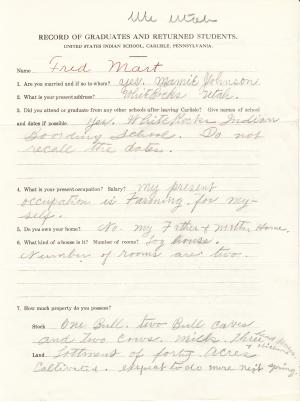 Ute Utah
RECORD OF GRADUATES AND RETURNED STUDENTS.
UNITED STATES INDIAN SCHOOL, CARLISLE, PENNSYLVANIA.
Name Fred Mart
1. Are you married and if so to whom? yes. Mamie Johnson.
2. What is your present address? Whiterocks Utah.
3. Did you attend or graduate from any other schools after leaving Carlisle? Give names of school
and dates if possible. yes. White Rocks Indian
Boarding School. Do not
recall the dates.
4. What is your present occupation? Salary? My present
occupation is Farming for my-
self.
5. Do you own your home? No. my Father & Mother Home.
6. What kind of a house is it? Number of rooms? Log house.
Number of rooms are two.
7. How much property do you possess?
Stock One Bull. two Bull caves
and two cows. Milk. three
Land Lottment of forty Acres
Caltivates. expect to do more next spring